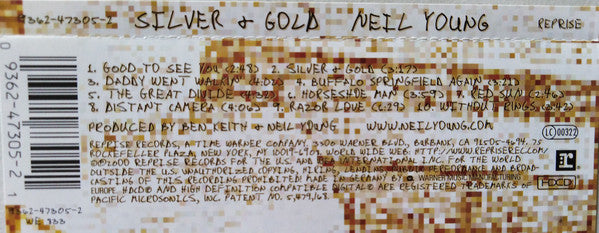 9362-47305-2 SILVER & GOLD NEIL YOUNG REPRISE
1. GOOD TO SEE YOU (2:48) 2. SILVER & GOLD (3:17)
3. DADDY WENT WALKIN' 4. BUFFALO SPRINGFIELD AGAIN
5. THE GREAT DIVIDE 6. HORSESHOE MAN (3:59) 7. RED SUN (2:46)
8. DISTANT CAMERA (4:06) 9. RAZOR LOVE 10. WITHOUT RINGS
PRODUCED BY BEN KEITH & NEIL YOUNG WWW.NEILYOUNG.COM
LC 00322
REPRISE RECORDS, A TIME WARNER COMPANY, 3300 WARNER BLVD., BURBANK, CA 91505-4694. 75
ROCKEFELLER PLAZA, NEW YORK, NY 10019-6907. WORLD WIDE WEB: HTTP://WWW.REPRISEREC.COM/
©2000 REPRISE RECORDS FOR THE U.S. AND WEA INTERNATIONAL INC. FOR THE WORLD
OUTSIDE THE U.S. UNAUTHORIZED COPYING, HIRING, LENDING, PUBLIC PERFORMANCE AND BROAD-
CASTING OF THIS RECORDING PROHIBITED. MADE IN GERMANY BY WARNER MUSIC MANUFACTURING
EUROPE. HDCD® AND HIGH DEFINITION COMPATIBLE DIGITAL® ARE REGISTERED TRADEMARKS OF
PACIFIC MICROSONICS, INC. PATENT NO. 5,479,168
HDCD
9362-47305-2
WE 833
0 9362-47305-2 1